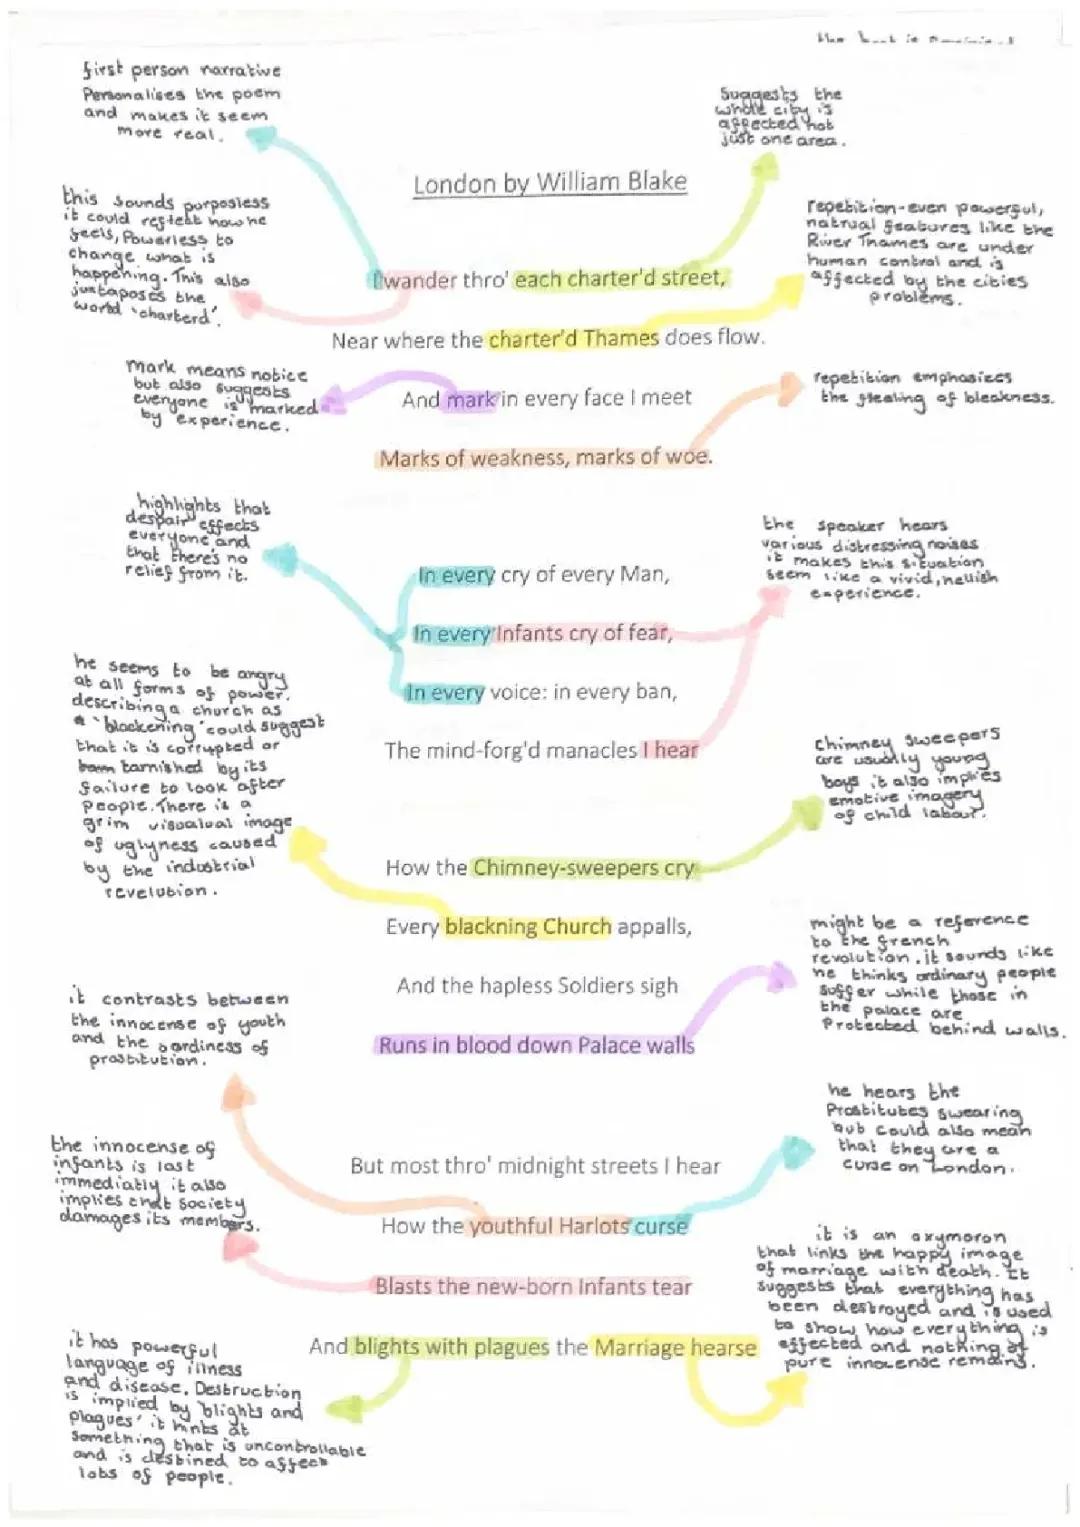 first person narrative
Personalises the poem
and makes it seem
more real.
Suggests the
whole city is
affected not
just one area.
London by William Blake
this sounds purposless
it could reflekt how he
feels, Powerless to
change what is
happening. This also
juxtaposes the
world 'charterd'.
repetition-even powerful,
natrual features like the
River Thames are under
human control and is
affected by the cities
problems.
I wander thro' each charter'd street,
Near where the charter'd Thames does flow.
mark means notice
but also suggests
everyone is 'marked
by experience.
And mark in every face I meet
repetition emphasizes
the flealing of bleakness.
Marks of weakness, marks of woe.
highlights that
despair effects
everyone and
that there's no
relief from it.
the speaker hears
various distressing noises
it makes this situation
seem like a vivid, hellish
experience.
In every cry of every Man,
In every Infants cry of fear,
In every voice: in every ban,
The mind-forg'd manacles I hear
he seems to be angry
at all forms of power.
describing a church as
a 'blackening' could suggest
that it is corrupted or
tarnished by its
failure to look after
people. There is a
grim visualual image
of uglyness caused
by the industrial
revelution.
chimney sweepers
are usually young
boys it also implies
emotive imagery
of child labour.
How the Chimney-sweepers cry
Every blackning Church appalls,
And the hapless Soldiers sigh
Runs in blood down Palace walls
might be a reference
to the french
revolution. it sounds like
he thinks ordinary people
suffer while those in
the palace are
Protected behind walls.
it contrasts between
the innocense of youth
and the sordiness of
prostitution.
he hears the
Prostitutes swearing
but could also mean
that they are a
curse on London.
the innocense of
infants is lost
immediatly it also
implies that society
damages its members.
But most thro' midnight streets I hear
How the youthful Harlots curse
Blasts the new-born Infants tear
And blights with plagues the Marriage hearse
it is an oxymoron
that links the happy image
of marriage with death. It
suggests that everything has
been destroyed and is used
to show how everything is
effected and nothing of
pure innocense remains.
it has powerful
language of illness
and disease. Destruction
is implied by 'blights and
plagues' it hints at
something that is uncontrollable
and is destined to affect
lots of people.